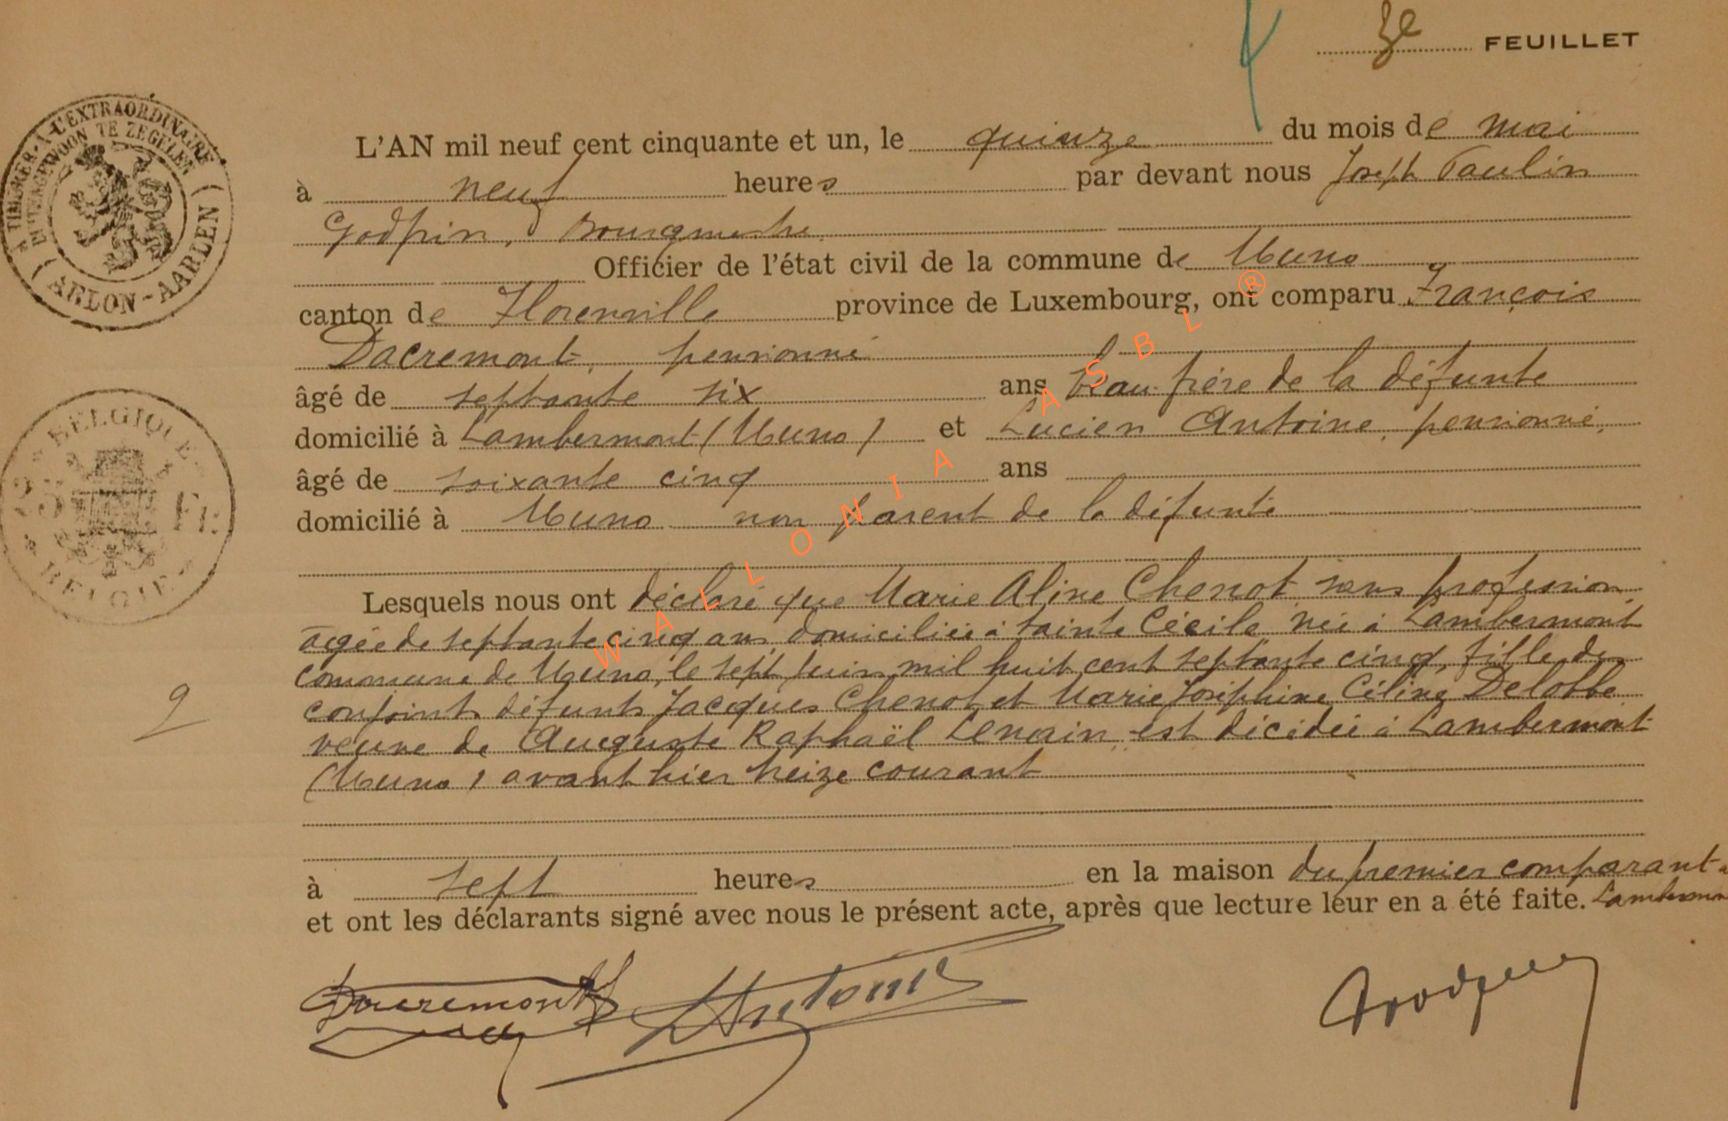 3e FEUILLET
L'AN mil neuf cent cinquante et un, le quinze du mois de mai
à neuf heures par devant nous Joseph Paulin
Godfrin, Bourgmestre
Officier de l'état civil de la commune de Muno
canton de Florenville province de Luxembourg, ont comparu François
Dacremont, pensionné
âgé de septante six ans beau-frère de la défunte
domicilié à Lambermont (Muno) et Lucien Antoine, pensionné,
âgé de soixante cinq ans
domicilié à Muno non parent de la défunte
Lesquels nous ont déclaré que Marie Aline Chenot sans profession,
âgée de septante cinq ans, domiciliée à Sainte Cécile née à Lambermont
commune de Muno, le sept juin mil huit cent septante cinq, fille de
conjoints défunts Jacques Chenot et Marie Joséphine Céline Delobbe
veuve de Auguste Raphaël Lenain est décédée à Lambermont
(Muno) avant hier treize courant
à sept heures en la maison du premier comparant à
et ont les déclarants signé avec nous le présent acte, après que lecture leur en a été faite. Lambermont
Dacremont LAntoine Godfrin
À L'EXTRAORDINAIRE
BUITENGEWOON TE ZEGELEN
(ARLON-AARLEN)
BELGIQUE
25 Fr.
BELGIË
2
WALLONIA ASBL ®